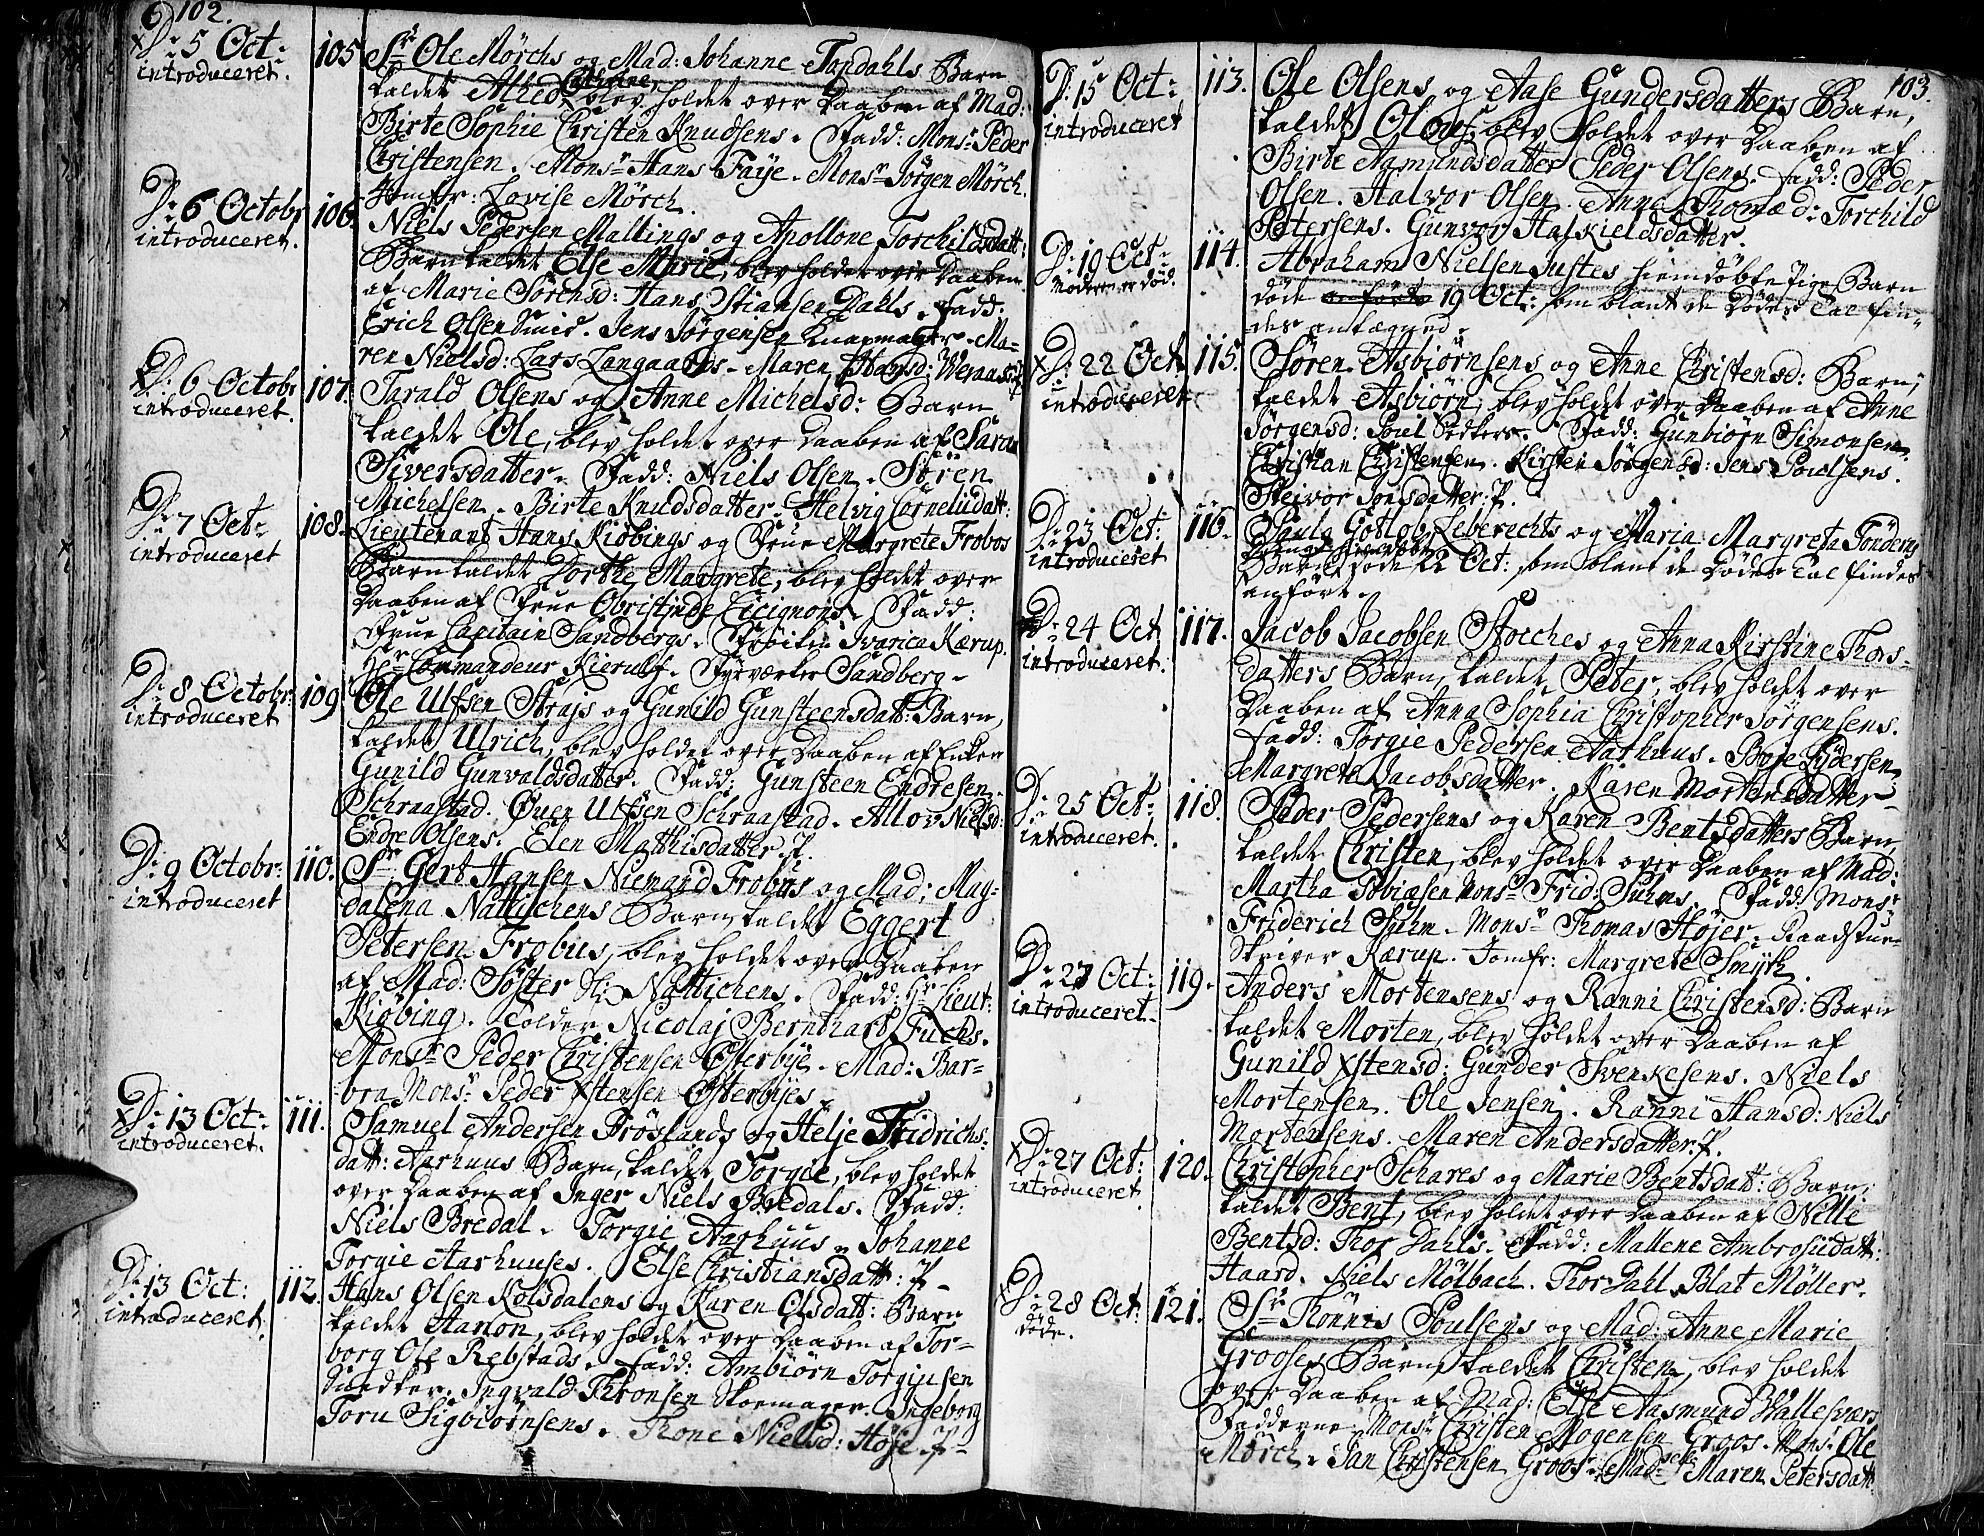 102.
D: 5 Oct:
introduceret.
105
Sr Ole Mörchs og Mad: Johanne Topdahls Barn
kaldet Alhed Cathrine blev holdet over Daaben af Mad:
Birte Sophie Christen Knudsens. Fadd: Monsr Peder
Christensen. Monsr Hans Faÿe. Monsr Jörgen Mörch.
Jomfr: Lovise Mörch.
D: 6 Octobr
introduceret.
106.
Niels Pedersen Mallings og Apollone Torchildsdatt:
Barn kaldet Else Marie, blev holdet over Daaben
af Marie Sörensd: Hans Stiansen Dahls. Fadd:
Erich Olsen Smid. Jens Jörgensen Knapmager. Ma-
ren Nielsd: Lars Langaards. Maren Hansd:
D: 6 Octobr
introduceret.
107.
Tarald Olsens og Anne Michelsd: Barn
kaldet Ole, blev holdet over Daaben af Sara
Siversdatter. Fadd: Niels Olsen. Sören
Michelsen. Birte Knudsdatter. Helvig Corneliidatt:
D: 7 Oct:
introduceret
108.
Lieutenant Hans Kiöbings og Frue Margrete Frobos
Barn kaldet Dorthe Margrete, blev holdet over
Daaben af Frue Obristinde Cicignons. Fadd:
Frue Capitain Sandbergs. Fröiken Ivarica Kærup.
Hr Commandeur Kierulf. Fyrværker Sandberg.
D: 8 Octobr:
introduceret
109
Ole Ulfsen Strajs og Gunild Gunsteensdatt: Barn,
kaldet Ulrich, blev holdet over Daaben af Enken
Gunild Gunvaldsdatter. Fadd: Gunsteen Endresen
Schraastad. Ouen Ulfsen Schraastad. Allov Nielsd:
Endre Olsens. Elen Matthisdatter P.
D: 9 Octobr:
introduceret
110.
Sr Gert Hansen Niemand Frobus og Mad: Mag-
dalena Nattichens Barn, kaldet Eggert
Petersen Frobus, blev holdet over Daaben
af Mad: Söster Sl: Nattichens. Fadd: Hr Lieut:
Kiöbing. Tolder Nicolaj Bernhart Fuchs.
Monsr Peder Christensen Österbÿe. Mad: Bar-
bra Monsr Peder Xstensen Österbÿes.
D: 13 Oct:
introduceret.
111.
Samuel Andersen Fröslands og Helje Fridrichs-
datt: Aarhuus Barn, kaldet Torgie, blev holdet
over Daaben af Inger Niels Bredals. Fadd:
Niels Bredal. Torgie Aarhuus. Johanne
Torgie Aarhuuses. Else Christiansdatt: P
D: 13 Oct:
introduceret.
112.
Hans Olsen Kolsdalens og Karen Olsdatt: Barn
kaldet Aanon, blev holdet over Daaben af Tor-
borg Ole Rebstads. Fadd: Ambiörn Torgiusen
Snedker. Ingvald Thronsen Skoemager. Ingeborg
Toru Sigbiörnsens. Trone Nielsd: Höje P
103.
D: 15 Oct:
introduceret
113.
Ole Olsens og Aase Gundersdatters Barn,
kaldet Olous, blev holdet over Daaben af
Birte Aamundsdatter Peder Olsens. Fadd: Peder
Olsen. Halvor Olsen. Anne Thomæd: Torchild
Petersens. Gunvor Halkieldsdatter.
D: 19 Oct:
Moderen er död.
114.
Abraham Nielsen Justes hiemdöbte Pige Barn
döde anförte 19 Oct: som blant de Dödes Tal fin-
des antægned.
D: 22 Oct
introduceret
115.
Sören Asbiörnsens og Anne Christensd: Barn,
kaldet Asbiörn, blev holdet over Daaben af Anne
Jörgensd: Poul Fedkers. Fadd: Gunbiörn Simonsen
Christian Christensen. Kirsten Jörgensd: Jens Poulsens.
Steivor Jonsdatter. P.
D: 23 Oct:
introduceret
116.
Paula Gotlob Leberechts og Maria Margreta Tönders
Barn döde 22 Oct: som blant de Dödes Tal findes
anfört.
D: 24 Oct
introduceret.
117.
Jacob Jacobsen Storches og Anna Kirstine Thors-
datters Barn, kaldet Peter, blev holdet over
Daaben af Anna Sophia Christopher Jörgensens.
Fadd: Torgie Pedersen Aarhuus. Boje Pedersen
Margrete Jacobsdatter. Karen Mortensdatter
D: 25 Oct:
introduceret.
118.
Peder Pedersens og Karen Bentsdatters Barn
kaldet Christen, blev holdet over Daaben af Mad:
Martha Tobiæsen Monsr Frid: Suhms. Fadd: Monsr
Friderich Suhm. Monsr Thomas Höjer. Raadstue-
skriver Kærup. Jomfr: Margrete Smÿth.
D: 27 Oct:
introduceret.
119.
Anders Mortensens og Ranni Christensd: Barn
kaldet Morten, blev holdet over Daaben af
Gunild Xstensd: Gunder Svenkesens. Niels
Mortensen. Ole Jensen. Ranni Hansd: Niels
Mortensens. Maren Andersdatter. P.
D: 27 Oct:
introduceret
120.
Christopher Schares og Marie Bentsdatt: Barn,
kaldet Bent, blev holdet over Daaben af Nelle
Bentsd: Thor Dahls. Fadd: Mallene Ambrosiidatt:
Haard. Niels Mölbach. Thor Dahl. Blat Möller.
D: 28 Oct:
döde.
121.
Sr Thönnes Poulsens og Mad: Anne Marie
Grooses Barn, kaldet Christen, blev holdet
over Daaben af Mad: Else Aasmund
Fadderne Monsr Christen Mogensen Groos. Monsr Ole
Mörch. Jan Christensen Groos. Mad: Maren Petersdatt: